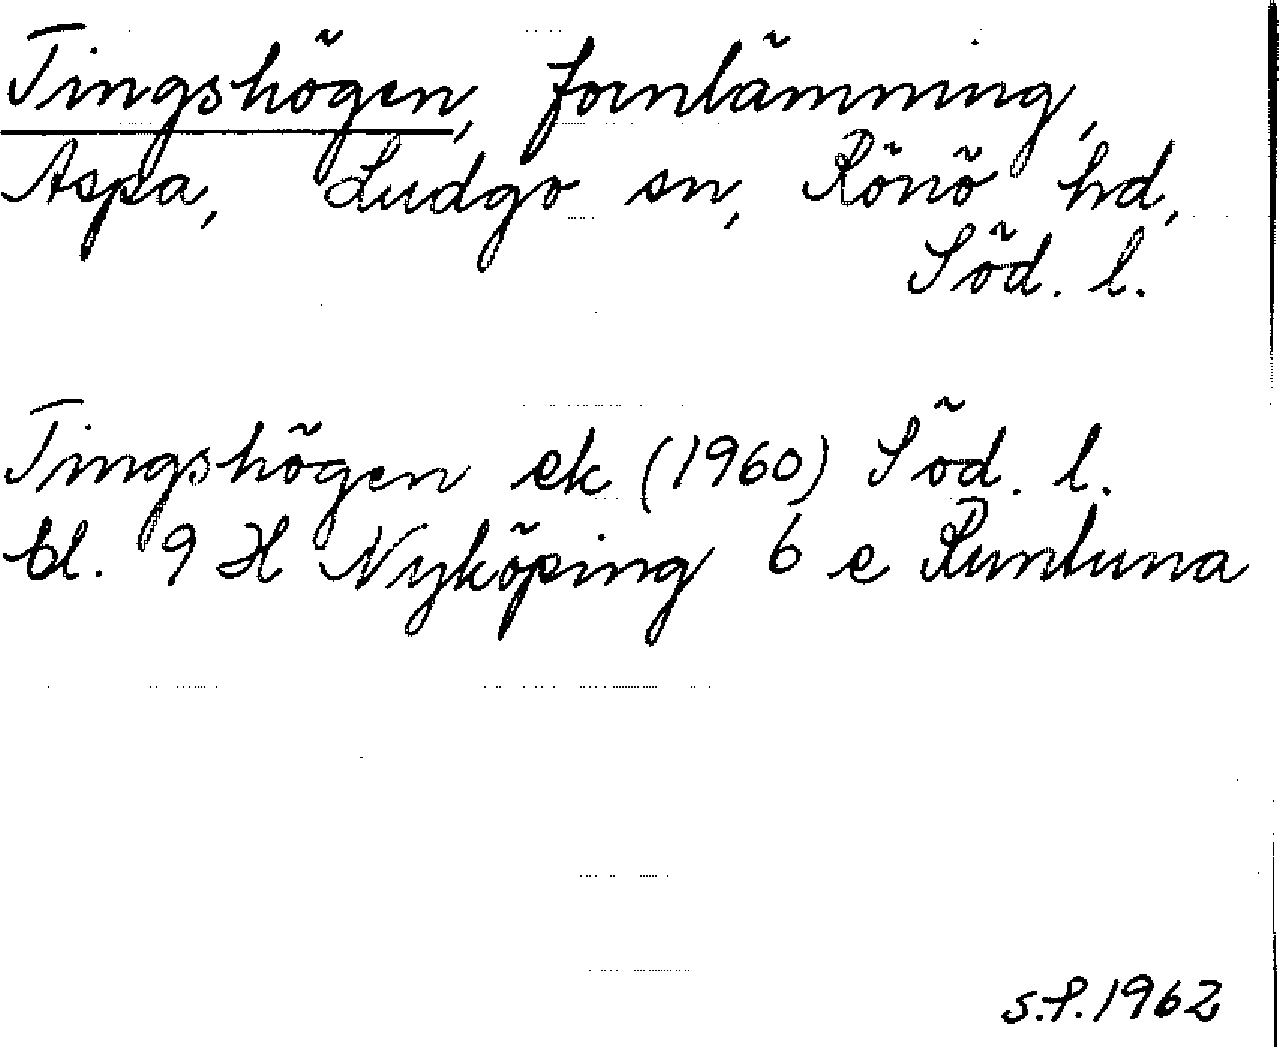 Tingshögen, fornlämning,
Aspa, Ludgo sn, Rönö hd,
Söd. l.
Tingshögen ek (1960) Söd. l.
bl. 9 H Nyköping 6 e Runtuna
s.f. 1962